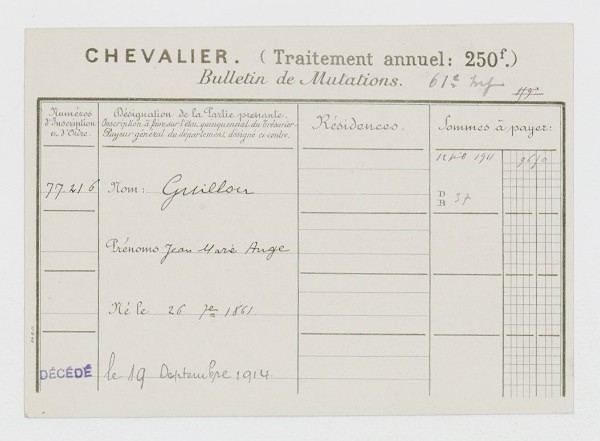 CHEVALIER. (Traitement annuel: 250f.)
Bulletin de Mutations. 61e Inf
Numéros d'Inscription ou d'Ordre.
Désignation de la Partie prenante.
Inscription à faire sur l'état quinquennal du Trésorier-
Payeur général du département désigné ci-contre.
Résidences.
Sommes à payer:
1911
77216 Nom: Guillou
D
B 37
Prénoms Jean Marie Ange
Né le 26 7re 1861
DÉCÉDÉ le 19 Septembre 1914